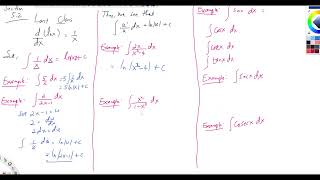 Section
5.2
Last Class
d/dx (ln x) = 1/x
So, ∫ 1/x dx = ln|x| + C
Example: ∫ 5/x dx = 5 ∫ 1/x dx
= 5 ln|x| + C
Example: ∫ 2/(2x-1) dx
Set 2x-1 = u
2 = du/dx
2dx = du
∫ 1/u du = ln|u| + C
= ln|2x-1| + C
Thus, we see that
∫ u'/u dx = ln|u| + C
Example: ∫ 2x/(x²-4) dx
= ln|x²-4| + C
Example: ∫ x²/(1-x³) dx
Example: ∫ sin x dx =
∫ cos x dx =
∫ tan x dx
Example: ∫ sin dx
Example ∫ cosec x dx